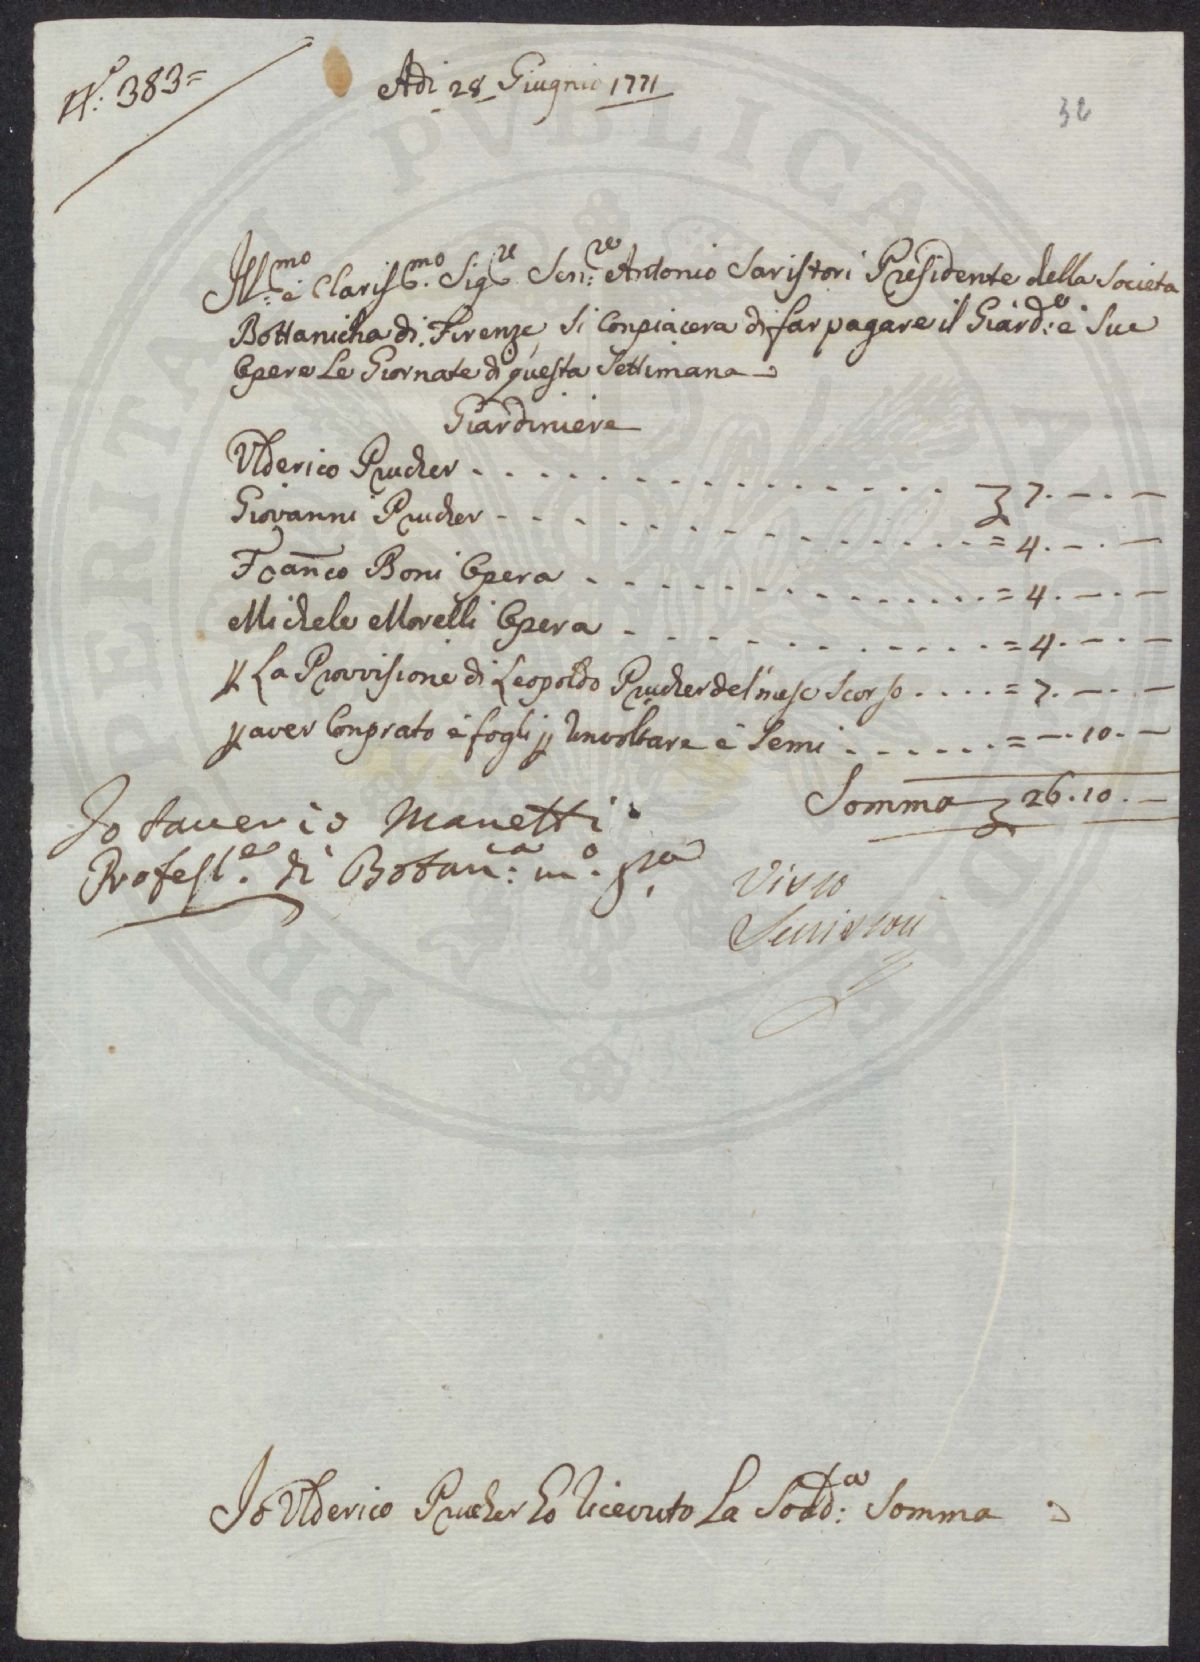 N.o 383=
Adi 28 Giugnio 1771
32
Ill:mo e Claris.mo Sig.re Sen:re Antonio Saristori Presidente della Societa
Bottanicha di Firenze, Si Conpiacera di far pagare il Giard:e e Sue
Opere Le Giornate di questa Settimana
Giardiniere
Ulderico Prucher - - - - 7. — . —
Giovanni Prucher - - - - = 4. — . —
Franco Boni Opera - - - - = 4. — . —
Michele Morelli Opera - - - - = 4. — . —
p La Provvisione di Leopoldo Prucher del mese Scorso . . . . = 7. — . —
p aver Conprato e fogli p Involtare e Semi . - - - - = — . 10. —
Somma 26. 10. —
Io Saverio Manetti
Profess.e di Botan:a m.o p.a
Visto
Serristori
Io Ulderico Prucher Ho Ricevuto La Sodd:a Somma